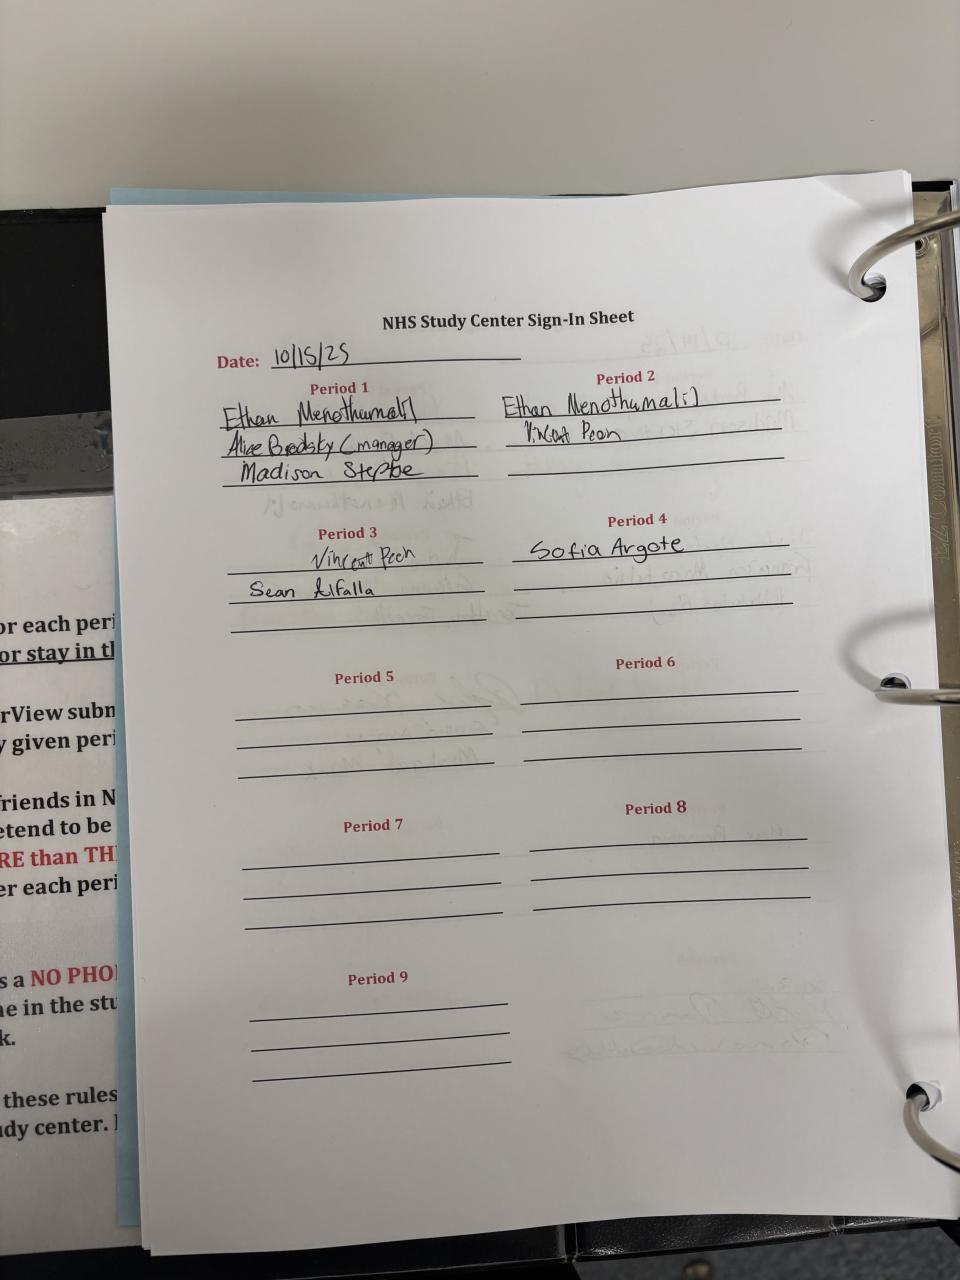 NHS Study Center Sign-In Sheet
Date: 10/15/25
Period 1
Ethan Menothumalil
Alice Brodsky (manager)
Madison
Period 2
Ethan Menothumalil
Vincent
Period 3
Vincent
Sean Alfalla
Period 4
Sofia Argote
Period 5
Period 6
Period 7
Period 8
Period 9
or each peri
or stay in tl
rView subn
y given peri
friends in N
etend to be
RE than TH
er each peri
s a NO PHO
ne in the stu
k.
these rules
udy center.